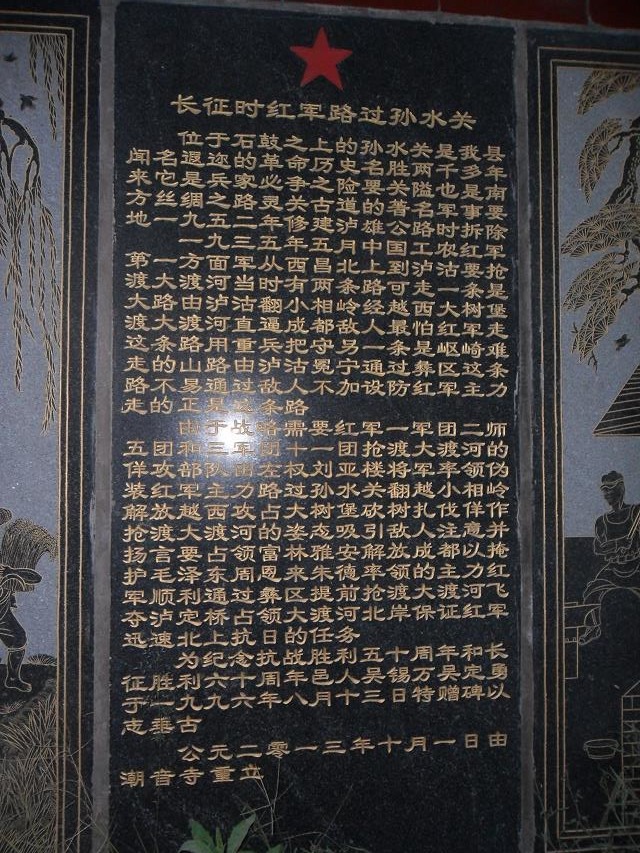 长征时红军路过孙水关
位于石鼓之上的孙水关是我县
闻名遐迩的革命历史名胜两千多年
来它是兵家必争之险要关隘也是南
方丝绸之路灵关古道的著名军事要
地一九五二年修建泸雄公路时拆除
一九三五年五月中国工农红军
第一方面军从西昌北上到泸沽要抢
渡大渡河当时有两条路可走一条是
大路由泸沽翻小相岭经越西大树堡
渡大渡河直逼成都敌人最怕红军走
这条路用重兵把守另一条是崎岖难
走的山路由泸沽冕宁通过彝区这条
路不易通过敌人不加设防红军主力
走的正是这条路
由于战略需要红军一军团二师
五团和三军团十一团抢渡大渡河的
佯攻部队由左权刘亚楼将军率领伪
装红军主力路过孙水关翻越小相岭
解放越西攻占大树堡砍树扎伐佯作
抢渡大渡河的姿态吸引敌人注意并
扬言要占领富林雅安解放成都以掩
护毛泽东周恩来朱德率领的主力红
军顺利通过彝区提前抢渡大渡河飞
夺泸定桥占领大渡河北岸保证红军
迅速北上抗日的任务
为纪念抗战胜利五十周年和长
征胜利六十周年邑人吴锡万吴定勇
于一九九六年八月十三日特赠碑以
志垂古
公元二零一三年十月一日由
潮音寺重立